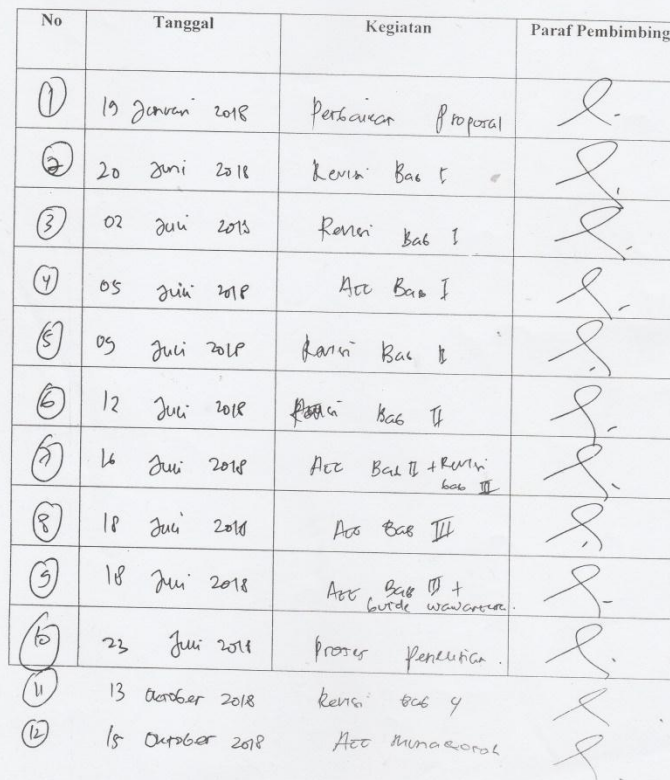 No Tanggal Kegiatan Paraf Pembimbing
1 19 Januari 2018 Perbaikan Proposal
2 20 Juni 2018 Revisi Bab I
3 02 Juli 2018 Revisi Bab I
4 05 Juli 2018 Acc Bab I
5 09 Juli 2018 Revisi Bab II
6 12 Juli 2018 Revisi Bab II
7 16 Juli 2018 Acc Bab II + Revisi
bab III
8 18 Juli 2018 Acc Bab III
9 18 Juli 2018 Acc Bab III +
Guide wawancara.
10 23 Juli 2018 Proses Penelitian
11 13 Oktober 2018 Revisi Bab 4
12 15 Oktober 2018 Acc Munaqosah